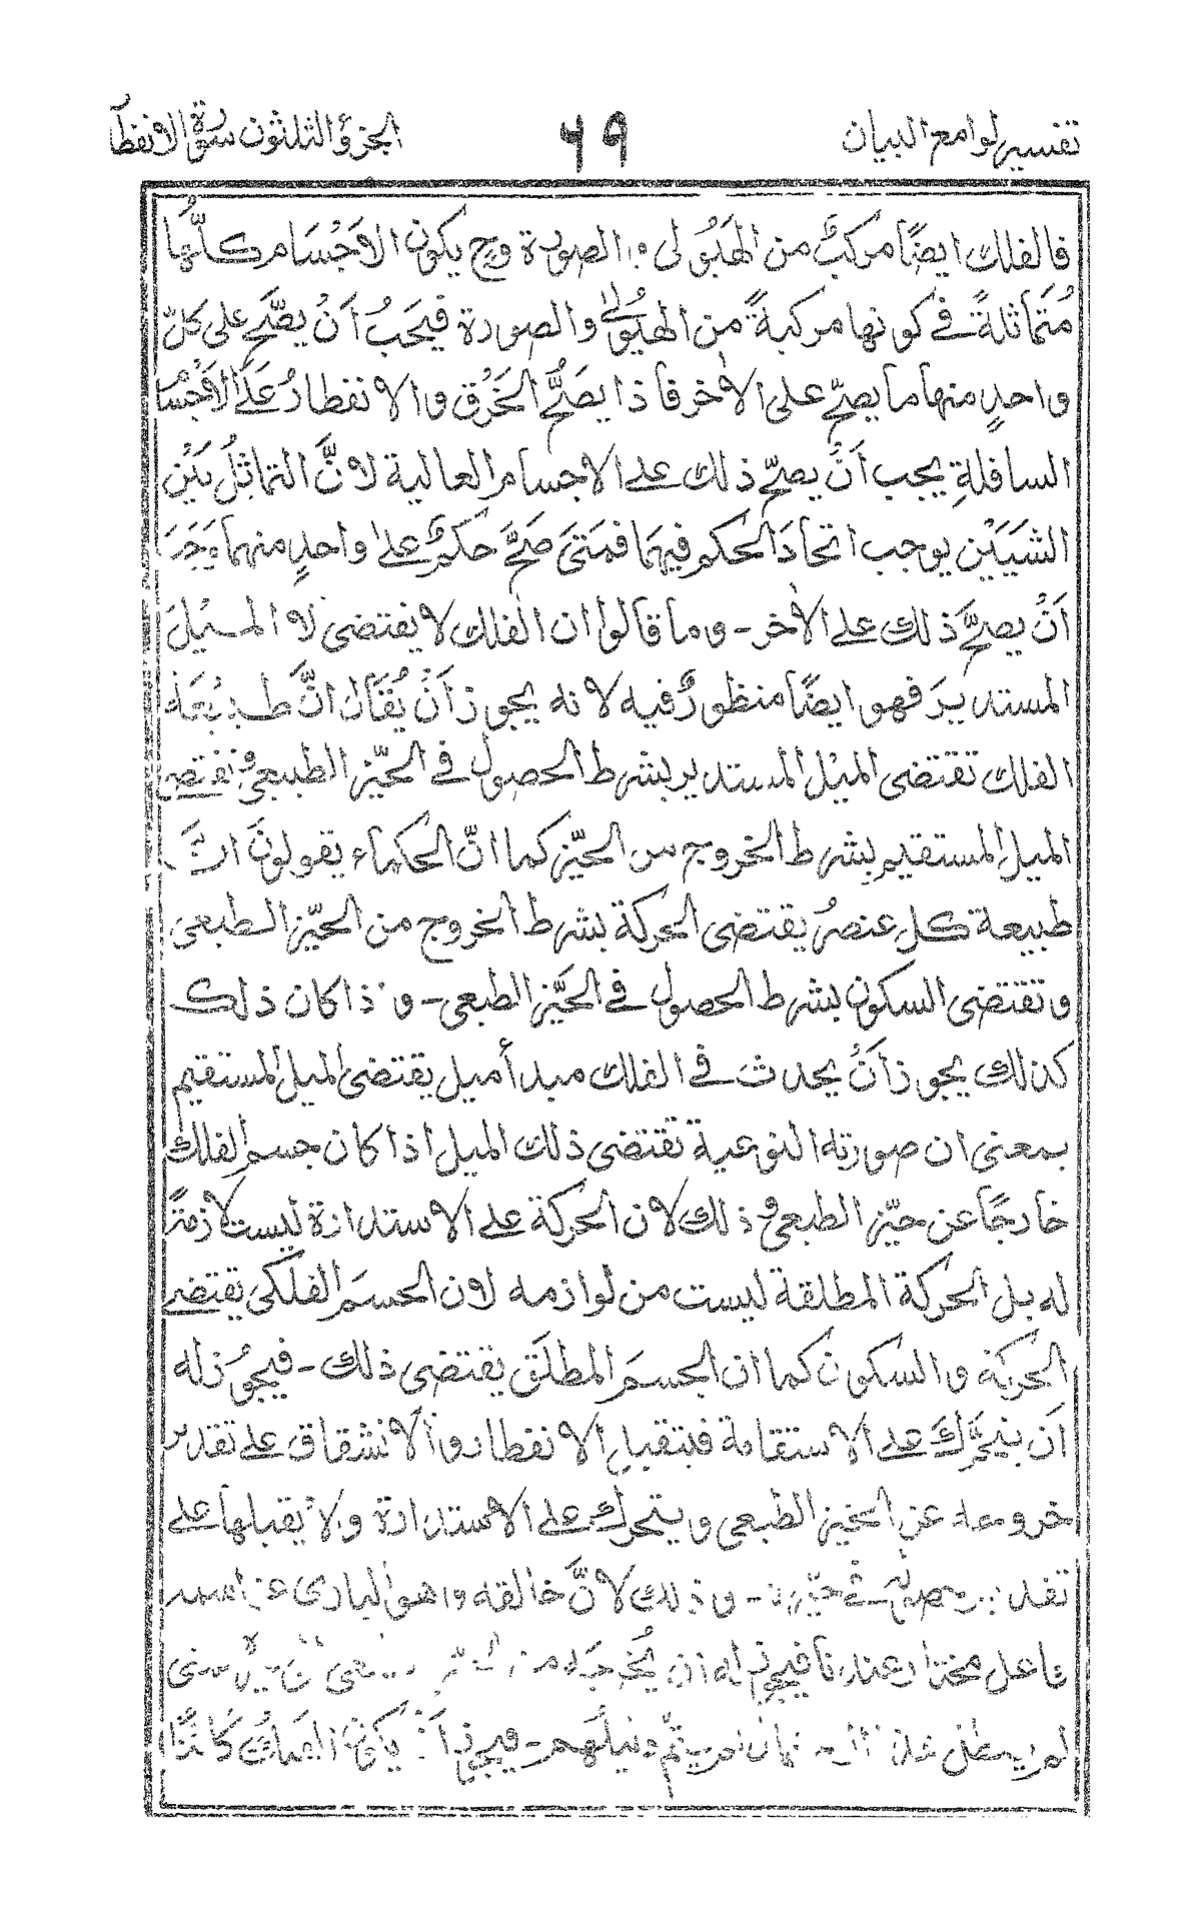 تفسير لوامع البيان ٦٩ الجزؤ الثلثون سورة الانفطا
فالفلك ايضًا مركبٌ من الهَيُولى والصورة وح يكون الاَجْسَام كلّها
مُتَماثلةً في كونها مركبةً من الهيُولىٰ والصورة فيَجبُ اَنْ يصَّح على كلّ
واحدٍ منها ما يصحّ على الاٰخر فاذا يَصَحُّ الخَرْق والانفطارُ عَلَى الاَجْسَا
السافلةِ يجب اَنْ يصحّ ذلك على الاجسام العالية لانَّ التماثلُ بَيْن
الشيَيْن يوجب اتحادَ الحكم فيهَما فمَتىَ صَحَّ حكمٌ على واحدٍ منهما وَجَبَ
اَنْ يصحَّ ذلك على الاٰخر - وما قالوا ان الفلك لا يقتضى لا الميْلَ
المستدير فهو ايضًا منظورٌ فيه لانه يجوز اَنْ يُقَال انَّ طبيْعَة
الفلك تقتضى الميْل المستدير بشرط الحصول في الحيّز الطبيعى وتقتضى
الميل المستقيم بشرط الخروج من الحيّز كما انّ الحكماء يقولونَ انَّ
طبيعة كل عنصرٍ يقتضى الحركة بشرط الخروج من الحيّز الطبعى
وتقتضى السكون بشرط الحصول في الحيَّز الطبعى - واذا كان ذلك
كذلك يجوز اَنْ يحدث في الفلك مبدأ ميل يقتضى الميل المستقيم
بمعنى ان صورته النوعية تقتضى ذلك الميل اذا كان جسم الفلك
خارجًا عن حيّز الطبعى وذلك لان الحركة على الاستدارة ليست لازمةً
له بل الحركة المطلقة ليست من لوازمه لان الجسمَ الفلكى يقتضى
الحركة والسكون كما ان الجسمَ المطلَق يقتضى ذلك - فيجوُز له
اَن يتحَّرك على الاستقامة فيتقبل الانفطار والانشقاق على تقدير
خروجه عن الحيّز الطبعى ويتحرك على الاستدارة ولا يقبلها على
تقدير حصوله في حيّزه - وذلك لانَّ خالقه وهو البارى عز اسمه
فاعل مختار عندنا فيجوز له ان يُخرجَه من الحيّز الطبعى
لم ثمّ فيجوز اَنْ يكون الفلك